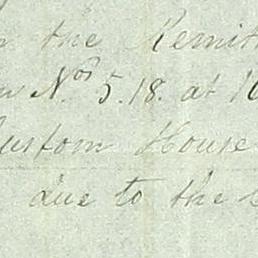 the Remit
Nos 5.18. at 10
Custom House
due to the